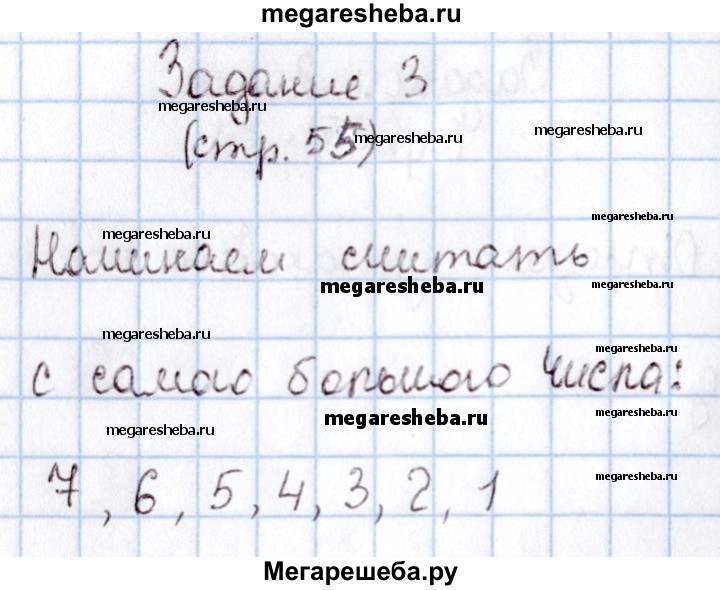 megaresheba.ru
Задание 3
megaresheba.ru
(стр. 55)
megaresheba.ru
megaresheba.ru
megaresheba.ru
megaresheba.ru
Начинаем считать
megaresheba.ru
megaresheba.ru
megaresheba.ru
megaresheba.ru
с самого большого числа:
megaresheba.ru
megaresheba.ru
megaresheba.ru
7, 6, 5, 4, 3, 2, 1
megaresheba.ru
Мегарешеба.ру